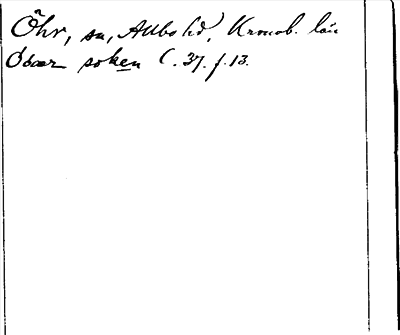 Öhr, sn, Allbo hd, Kronob. län
Odær soken C. 37. f. 13.